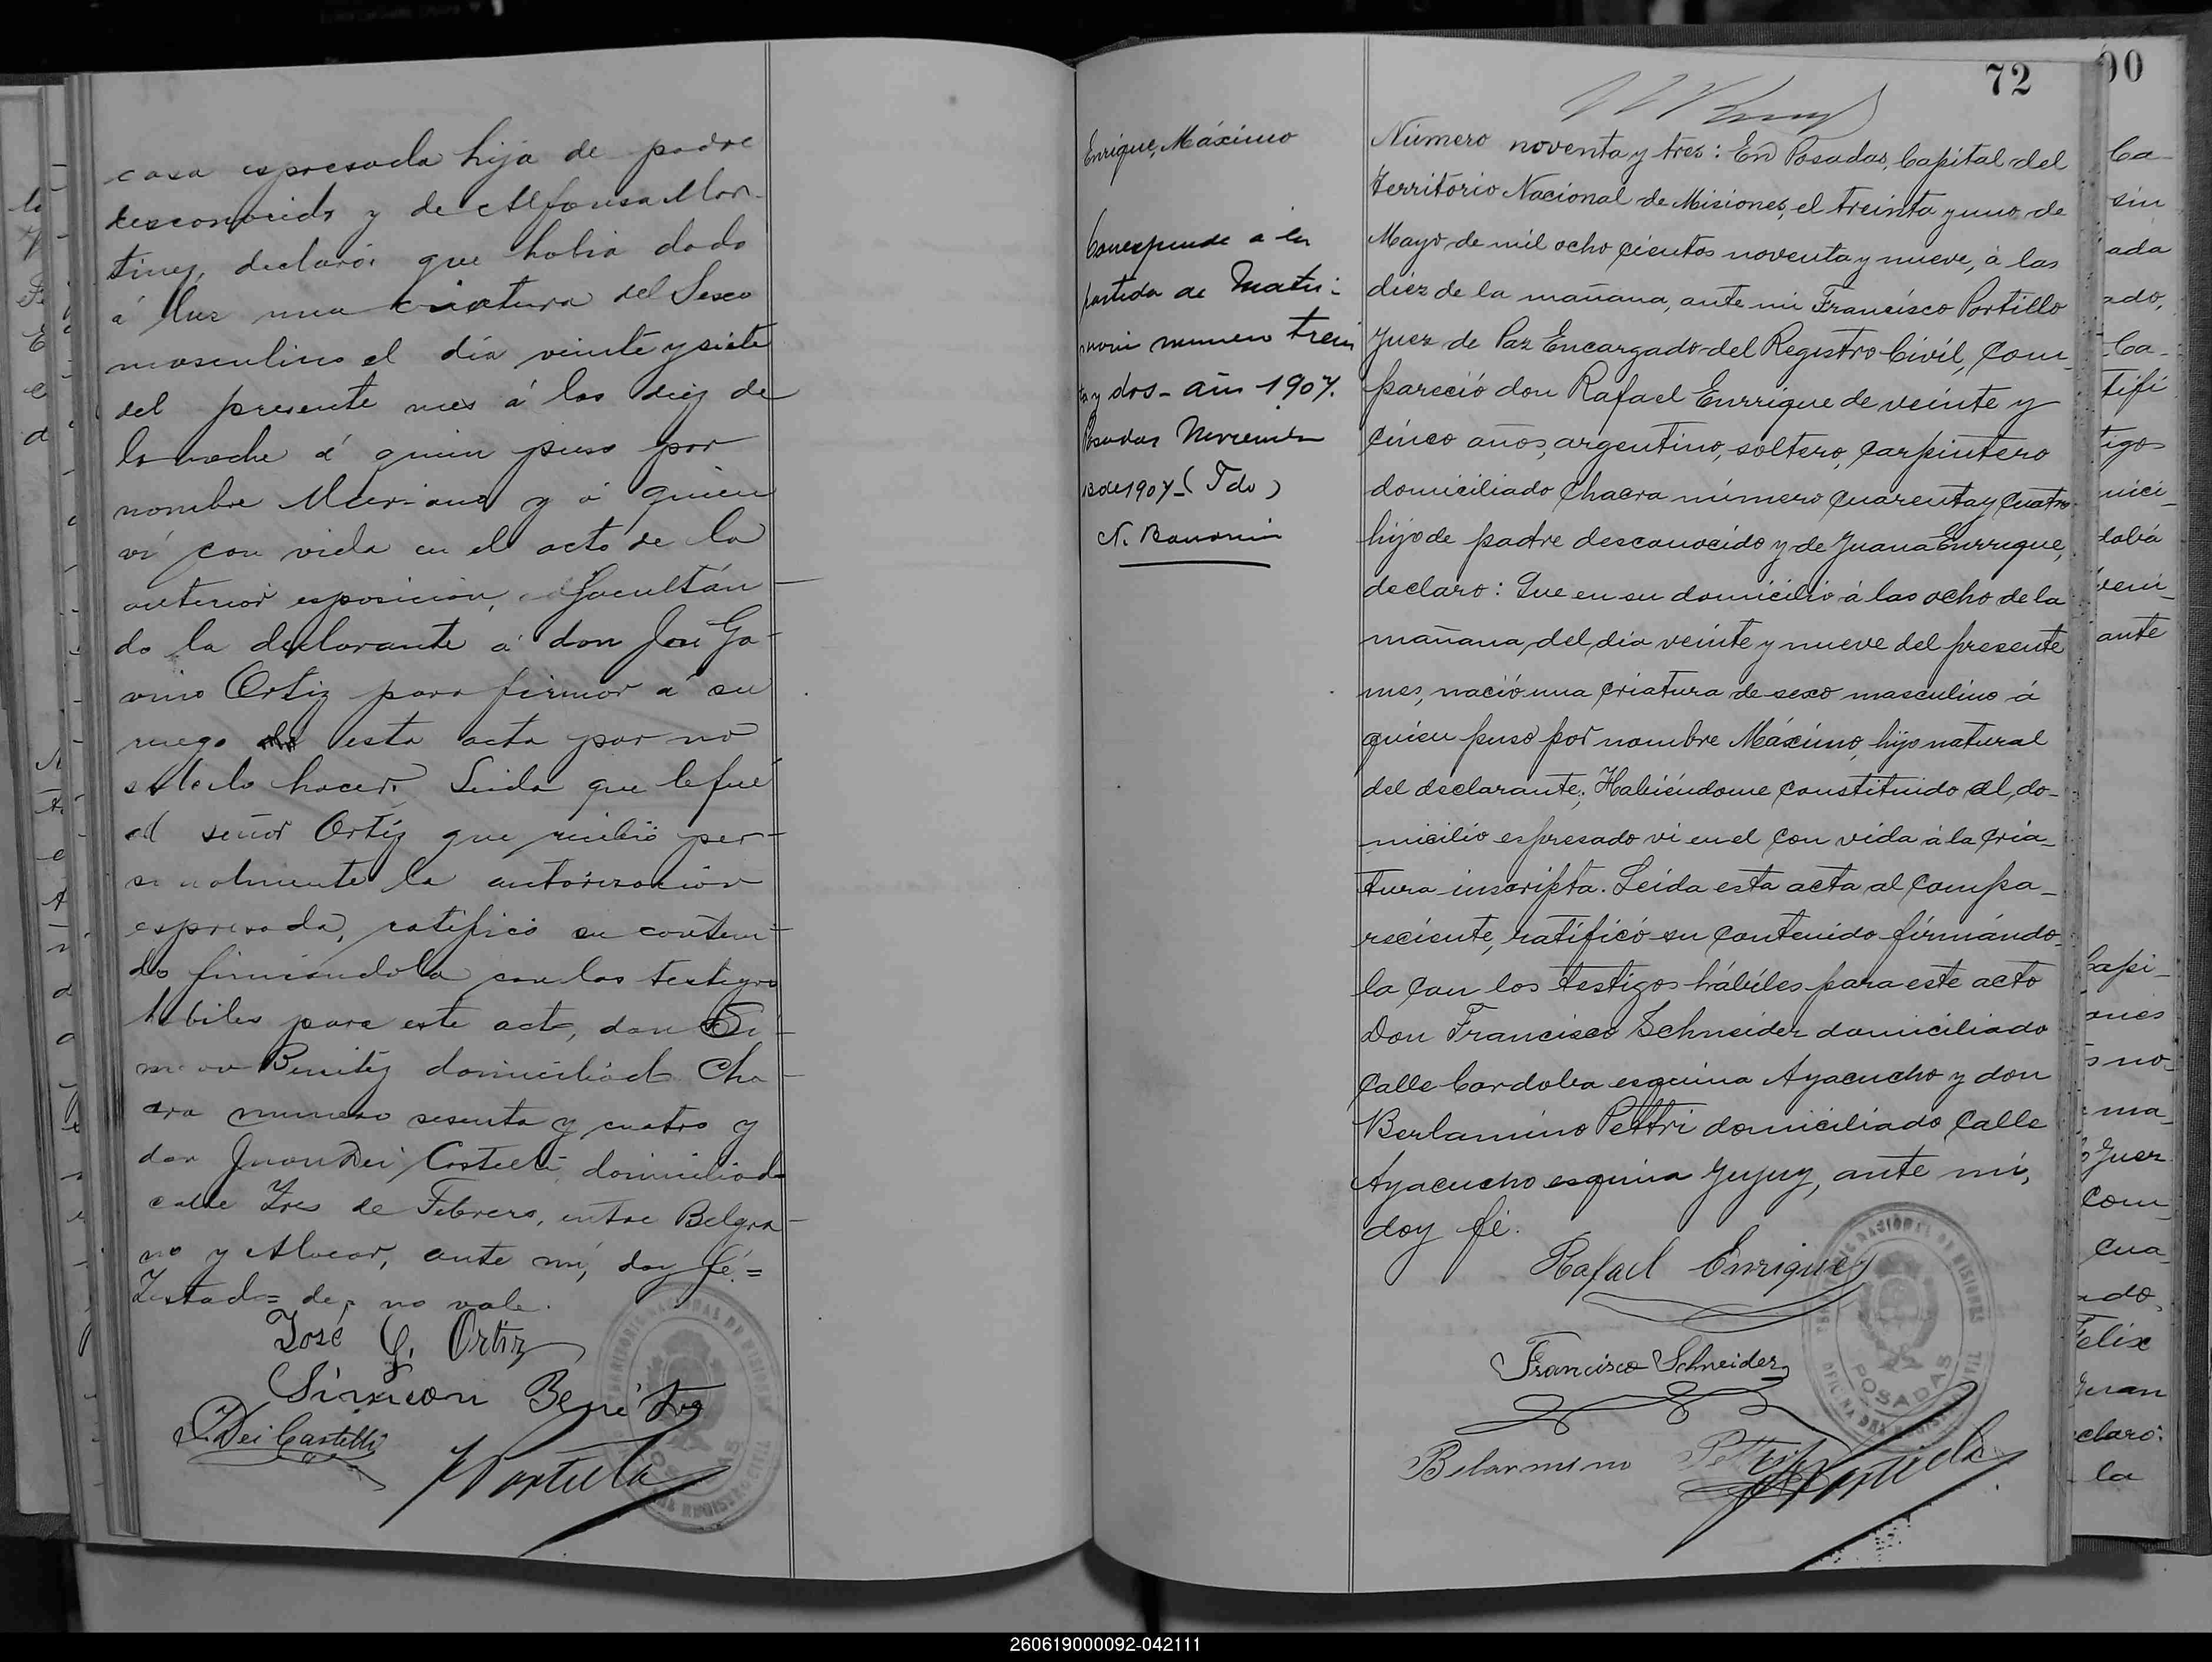 casa espresada hija de padre
desconocido y de Alfonsa Mar-
tinez, declaró: que habia dado
á luz una criatura del Sexo
masculino el dia veinte y siete
del presente mes á las diez de
la noche á quien puso por
nombre Mariano y á quien
ví con vida en el acto de la
anterior esposicion, facultán
do la declarante á don José Ga-
vino Ortiz para firmar á su
ruego esta acta por no
saberlo hacer. Leida que le fué
al señor Ortiz que recibió per-
sonalmente la autorizacion
espresada, ratificó su conteni-
do firmándola con los testigos
hábiles para este acto, don Si-
meon Benitez domiciliado Cha-
cra numero sesenta y cuatro y
don Juan Dei Castelli, domiciliado
calle Tres de Febrero, entre Belgra-
no y Alvear, ante mí, doy fé.=
Testado= de, no vale.
José G. Ortiz
Simeon Benitez
J. Dei Castelli
F Portillo
72
Enrique, Máximo
Corresponde a la
partida de Matri-
monio numero trein
ta y dos - año 1907.
Posadas Noviembre
12 de 1907 - (Fdo)
Número noventa y tres: En Posadas, Capital del
Territorio Nacional de Misiones, el treinta y uno de
Mayo de mil ocho cientos noventa y nueve, á las
diez de la mañana, ante mi Francisco Portillo
Juez de Paz Encargado del Registro Civil, com-
pareció don Rafael Enrrique de veinte y
cinco años, argentino, soltero, carpintero
domiciliado Chacra número cuarenta y cuatro
hijo de padre desconocido y de Juana Enrrique,
declaro: Que en su domicilio á las ocho de la
mañana, del dia veinte y nueve del presente
mes, nació una criatura de sexo masculino á
quien puso por nombre Máximo, hijo natural
del declarante; Habiéndome constituido al do-
micilio espresado vi en el con vida á la cria-
tura inscripta. Leida esta acta al compa-
reciente, ratificó su contenido firmándo-
la con los testigos hábiles para este acto
Don Francisco Schneider domiciliado
Calle Cordoba esquina Ayacucho y don
Berlamino Pettri domiciliado calle
Ayacucho esquina Jujuy, ante mí,
doy fé.
Rafael Enrique
Francisco Schneider
Belarmino Pettri
F Portillo
POSADAS
90
260619000092-042111